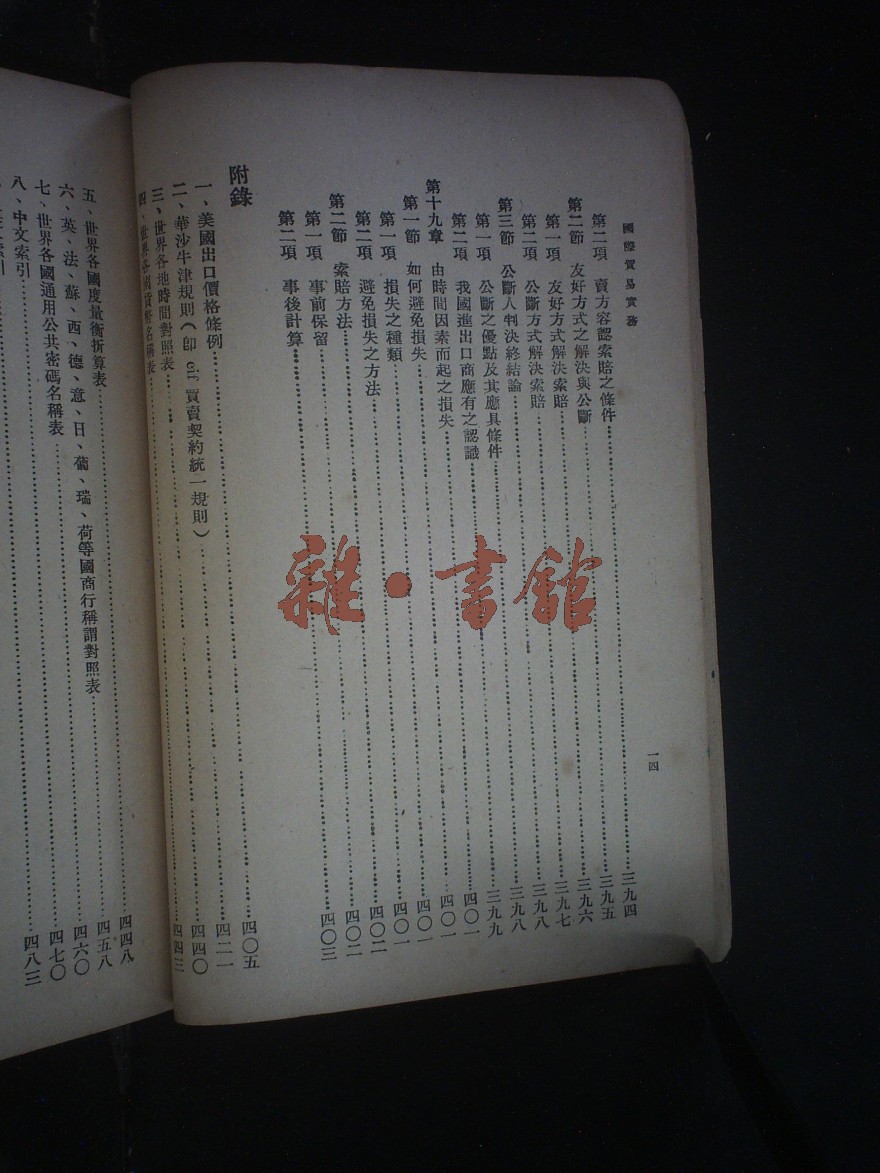 國際貿易實務
一四
第二項 賣方容認索賠之條件……三九四
第二節 友好方式之解決與公斷……三九五
第一項 友好方式解決索賠……三九六
第二項 公斷方式解決索賠……三九七
第三節 公斷人判決終結論……三九八
第一項 公斷之優點及其應具條件……三九八
第二項 我國進出口商應有之認識……三九九
第十九章 由時間因素而起之損失……四〇一
第一節 如何避免損失……四〇一
第一項 損失之種類……四〇一
第二項 避免損失之方法……四〇一
第二節 索賠方法……四〇二
第一項 事前保留……四〇二
第二項 事後計算……四〇三
附錄
一、美國出口價格條例……四〇五
二、華沙牛津規則(即cif買賣契約統一規則)……四二一
三、世界各地時間對照表……四四〇
四、世界各國貨幣名稱表……四四三
五、世界各國度量衡折算表……四四八
六、英、法、蘇、西、德、意、日、葡、瑞、荷等國商行稱謂對照表……四五八
七、世界各國通用公共密碼名稱表……四六〇
八、中文索引……四七〇
索引……四八三
雜·書館